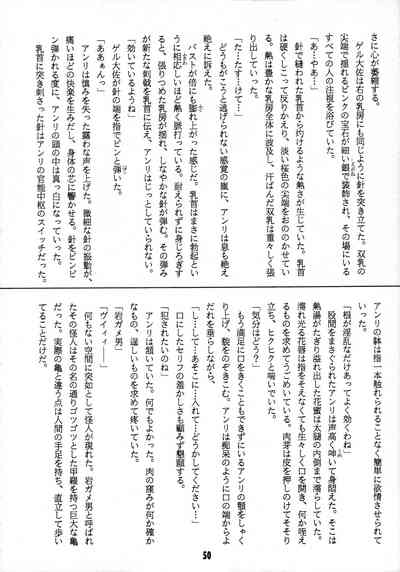 さに心が萎縮する。
　ゲル大佐は右の乳房にも同じように針を突き立てた。双乳の
尖端で揺れるピンクの宝石が細い銀で装飾され、その場にいる
すべての人の注視を浴びていた。
「あ…やあ…」
　針で縫われた乳首から灼けるような熱さが生じていた。乳首
は硬くしこって反りかえり、淡い桜色の尖端をおののかせてい
る。熱は豊かな乳房全体に波及し、汗ばんだ双乳は重々しく張
り出していた。
「た…たす…けて…」
　どうもがこうと逃げられない感覚の嵐に、アンリは息も絶え
絶えに訴えた。
　バストが倍にも膨れ上がった感じだ。乳首はまさに勃起とい
うに相応しいほど熱く脈打っている。耐えられずに身じろぎす
ると、張りつめた乳房が揺れ、しなやかな針が弾む。その弾み
が新たな刺戟を乳首に伝え、アンリはじっとしていられない。
「効いているようね」
　ゲル大佐が針の端を指でピンと弾いた。
「ああぁんっ」
　アンリは慎みを失った露わな声を上げた。微細な針の振動が、
痛いほどの快楽を生みだし、身体の芯に響かせる。針をピンピ
ン弾かれる度に、アンリの頭の中は真っ白になっていった。
　乳首に突き刺さった針はアンリの官能中枢のスイッチだった。
アンリの躰は指一本触れられることなく簡単に欲情させられて
いった。
「根が淫乱なだけあってよく効くわね」
　股間をまさぐられたアンリは声高く呻いて身悶えた。そこは
熱湯がたぎり溢れ出した花蜜は太腿の内側まで濡らしていた。
濡れ光る花唇は指をそえなくても生々しく口を開き、何か咥え
るものを求めてうごめいている。肉芽は皮を押しのけてそそり
立ち、ヒクヒクと喘いでいた。
「気分はどう？」
　もう満足に口をきくこともできずにいるアンリの顎をしゃく
り上げ、貌をのぞきこむ。アンリは痴呆のように口の端からよ
だれを垂らしながら、
「し…して…あそこに…入れて…どうかしてください…」
　口にしたセリフの羞かしさも顧みず懇願する。
「犯されたいのね」
　アンリは頷いていた。何でもよかった。肉の窪みが何か確か
なもの、逞しいものを求めて疼いていた。
「岩ガメ男」
「ヴィィィ――」
　何もない空間に突如として怪人が現れた。岩ガメ男と呼ばれ
たその怪人はその名の通りゴツゴツとした甲羅を持つ巨大な亀
だった。実際の亀と違う点は人間の手足を持ち、直立して歩い
てることだけだ。
50